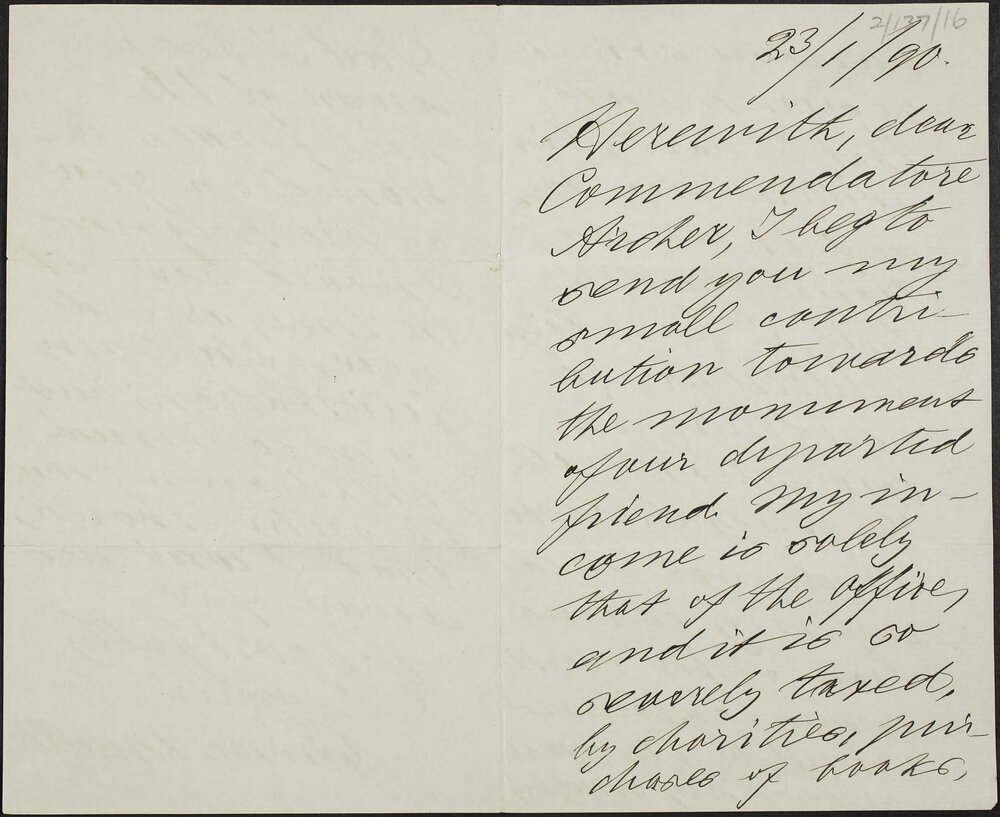 2/137/16
23/1/90.
Herewith, dear
Commendatore
Archer, I beg to
send you my
small contri-
bution towards
the monument
of our departed
friend. My in-
come is solely
that of the office,
and it is so
severely taxed,
by charities, pur-
chases of books,